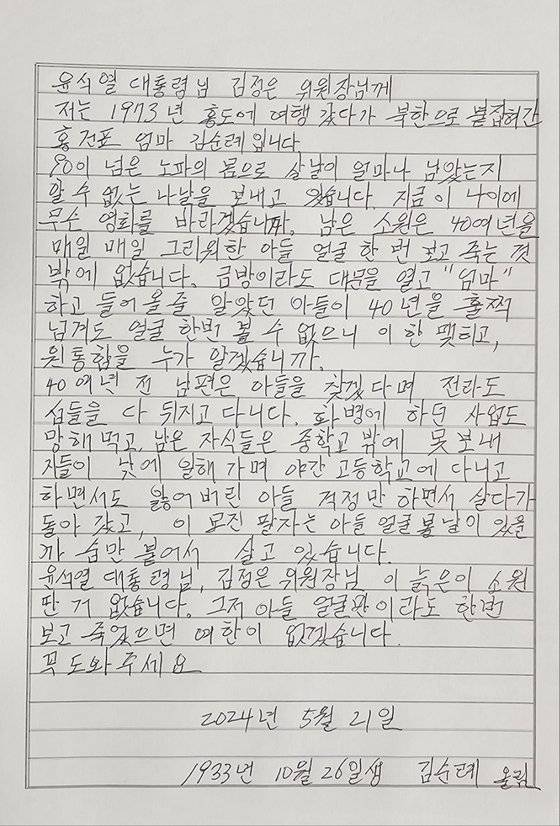 윤석열 대통령님 김정은 위원장님께
저는 1973년 홍도에 여행 갔다가 북한으로 붙잡혀간
홍건표 엄마 김순례입니다
90이 넘은 노파의 몸으로 살날이 얼마나 남았는지
알 수 없는 나날을 보내고 있습니다. 지금 이 나이에
무슨 영화를 바라겠습니까, 남은 소원은 40여년을
매월 매일 그리워한 아들 얼굴 한 번 보고 죽는 것
밖에 없습니다. 금방이라도 대문을 열고 "엄마"
하고 들어올줄 알았던 아들이 40년을 훌쩍
넘겨도 얼굴 한번 볼 수 없으니 이 한 맺히고,
원통함을 누가 알겠습니까.
40여년 전 남편은 아들을 찾겠다며 전라도
섬들을 다 뒤지고 다니다. 화병에 하던 사업도
망해 먹고, 남은 자식들은 중학교 밖에 못보내
자들이 낮에 일해 가며 야간 고등학교에 다니고
하면서도 잃어버린 아들 걱정만 하면서 살다가
돌아 갔고, 이 모진 팔자는 아들 얼굴 볼날이 있을
까 숨만 붙어서 살고 있습니다.
윤석열 대통령님, 김정은 위원장님 이 늙은이 소원
딴 거 없습니다. 그저 아들 얼굴 이라도 한번
보고 죽었으면 여한이 없겠습니다.
꼭 도와주세요
2024년 5월 21일
1933년 10월 26일생 김순례 올림